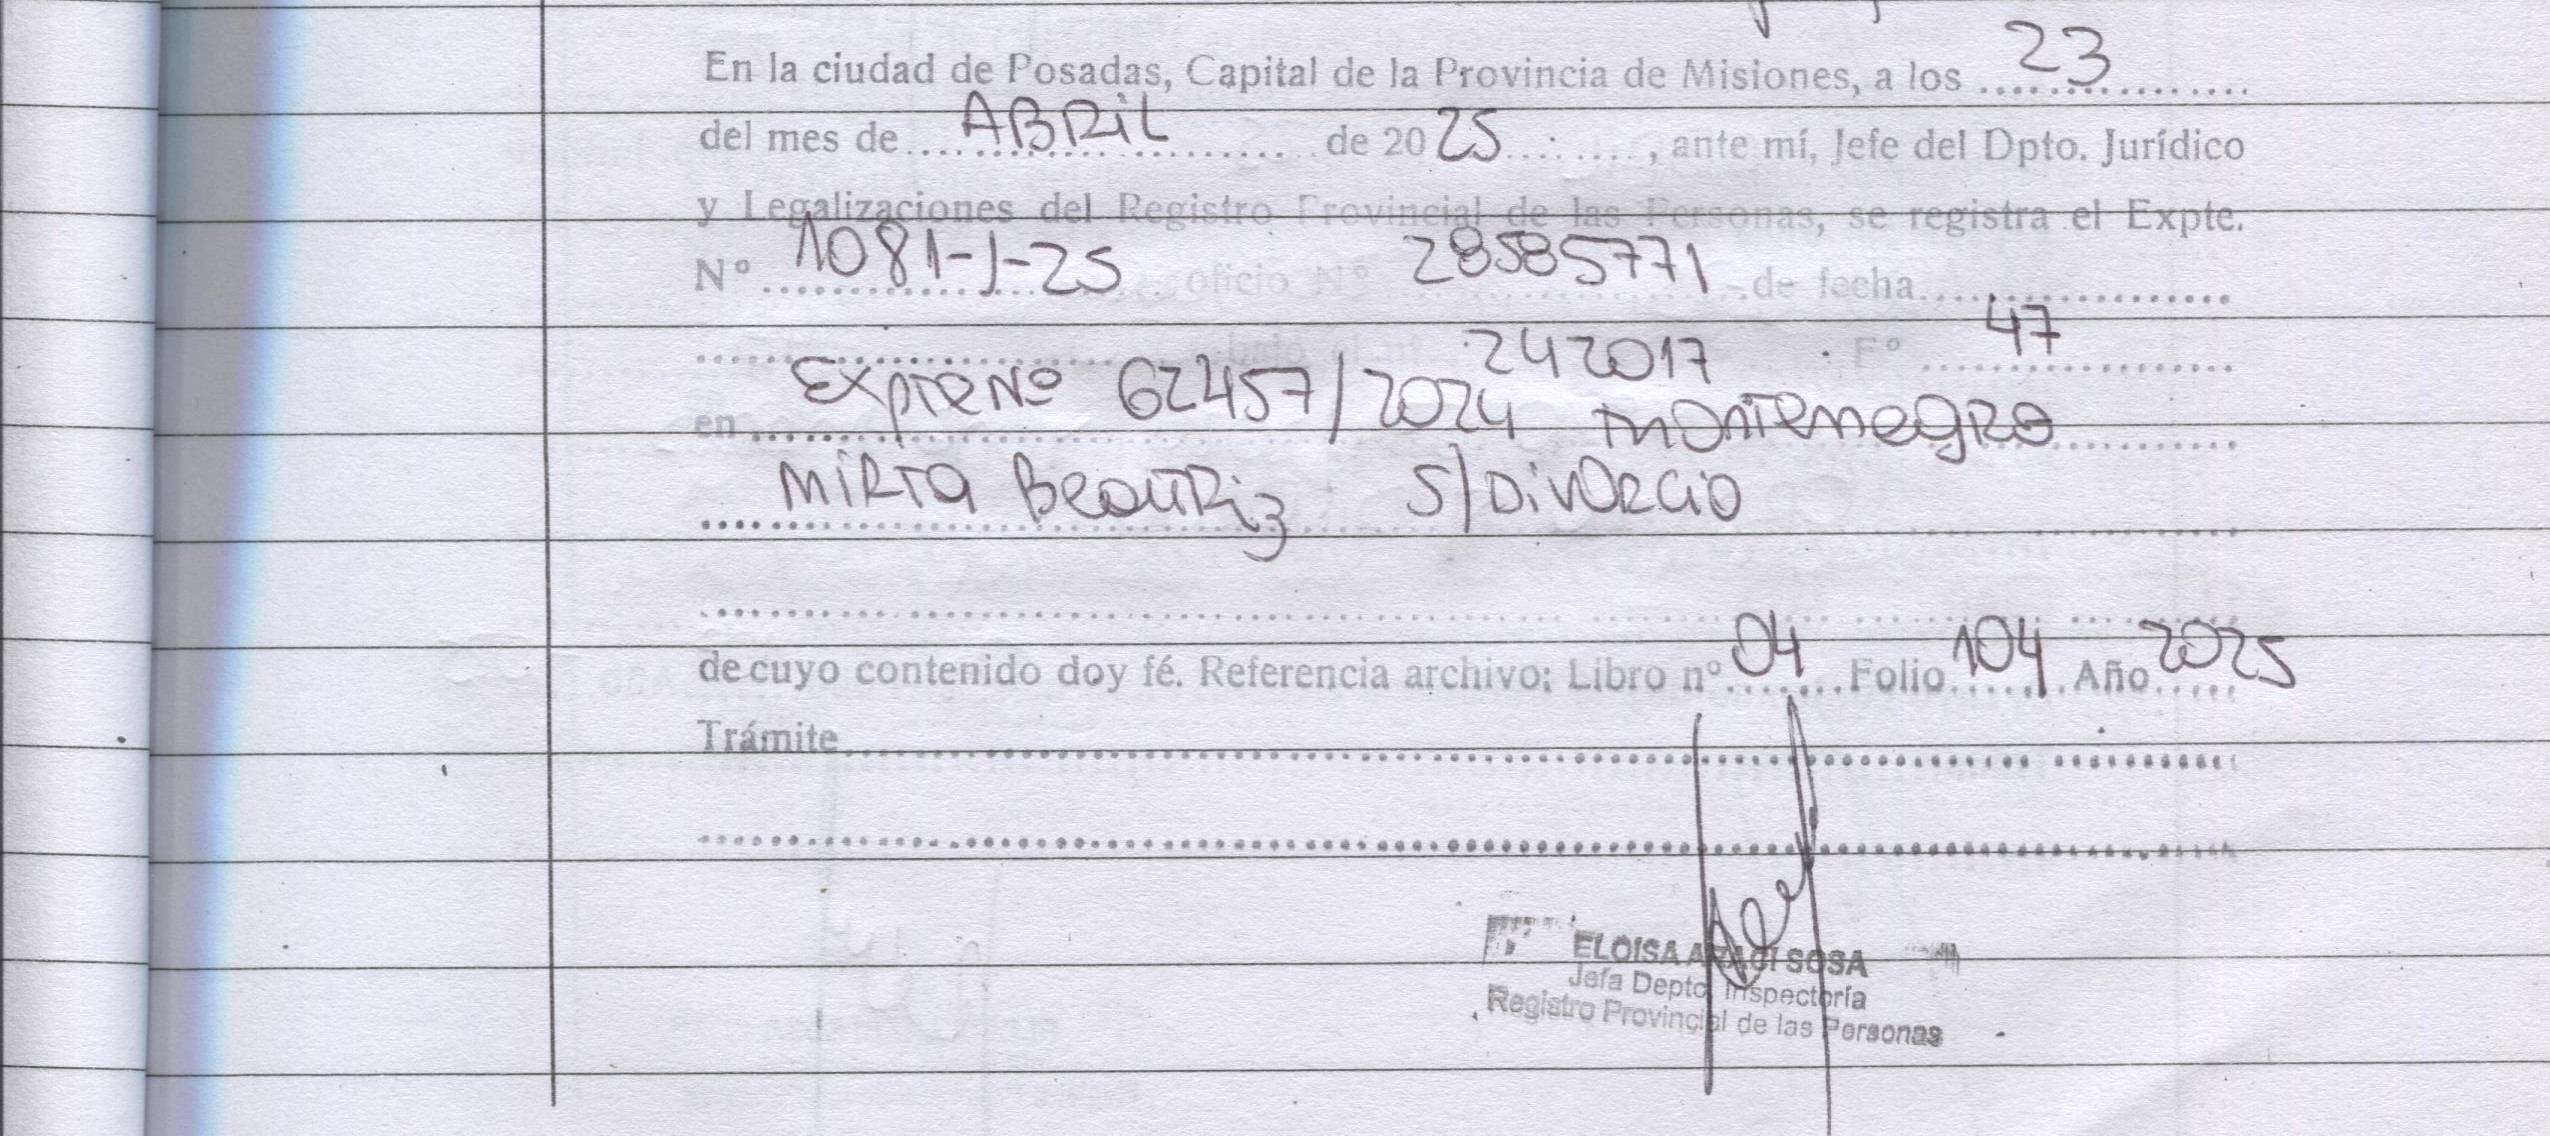 En la ciudad de Posadas, Capital de la Provincia de Misiones, a los 23
del mes de ABRiL de 2025, ante mí, Jefe del Dpto. Jurídico
y Legalizaciones del Registro Provincial de las Personas, se registra el Expte.
Nº 1081-J-25 oficio Nº 28585771 de fecha
242017 Fº 47
en Expte Nº 62457/2024 Montenegro
Mirta Beatriz S/Divorcio
de cuyo contenido doy fé. Referencia archivo; Libro nº 04 Folio 104 Año 2025
Trámite
ELOISA ARACI SOSA
Jefa Depto. Inspectoría
Registro Provincial de las Personas